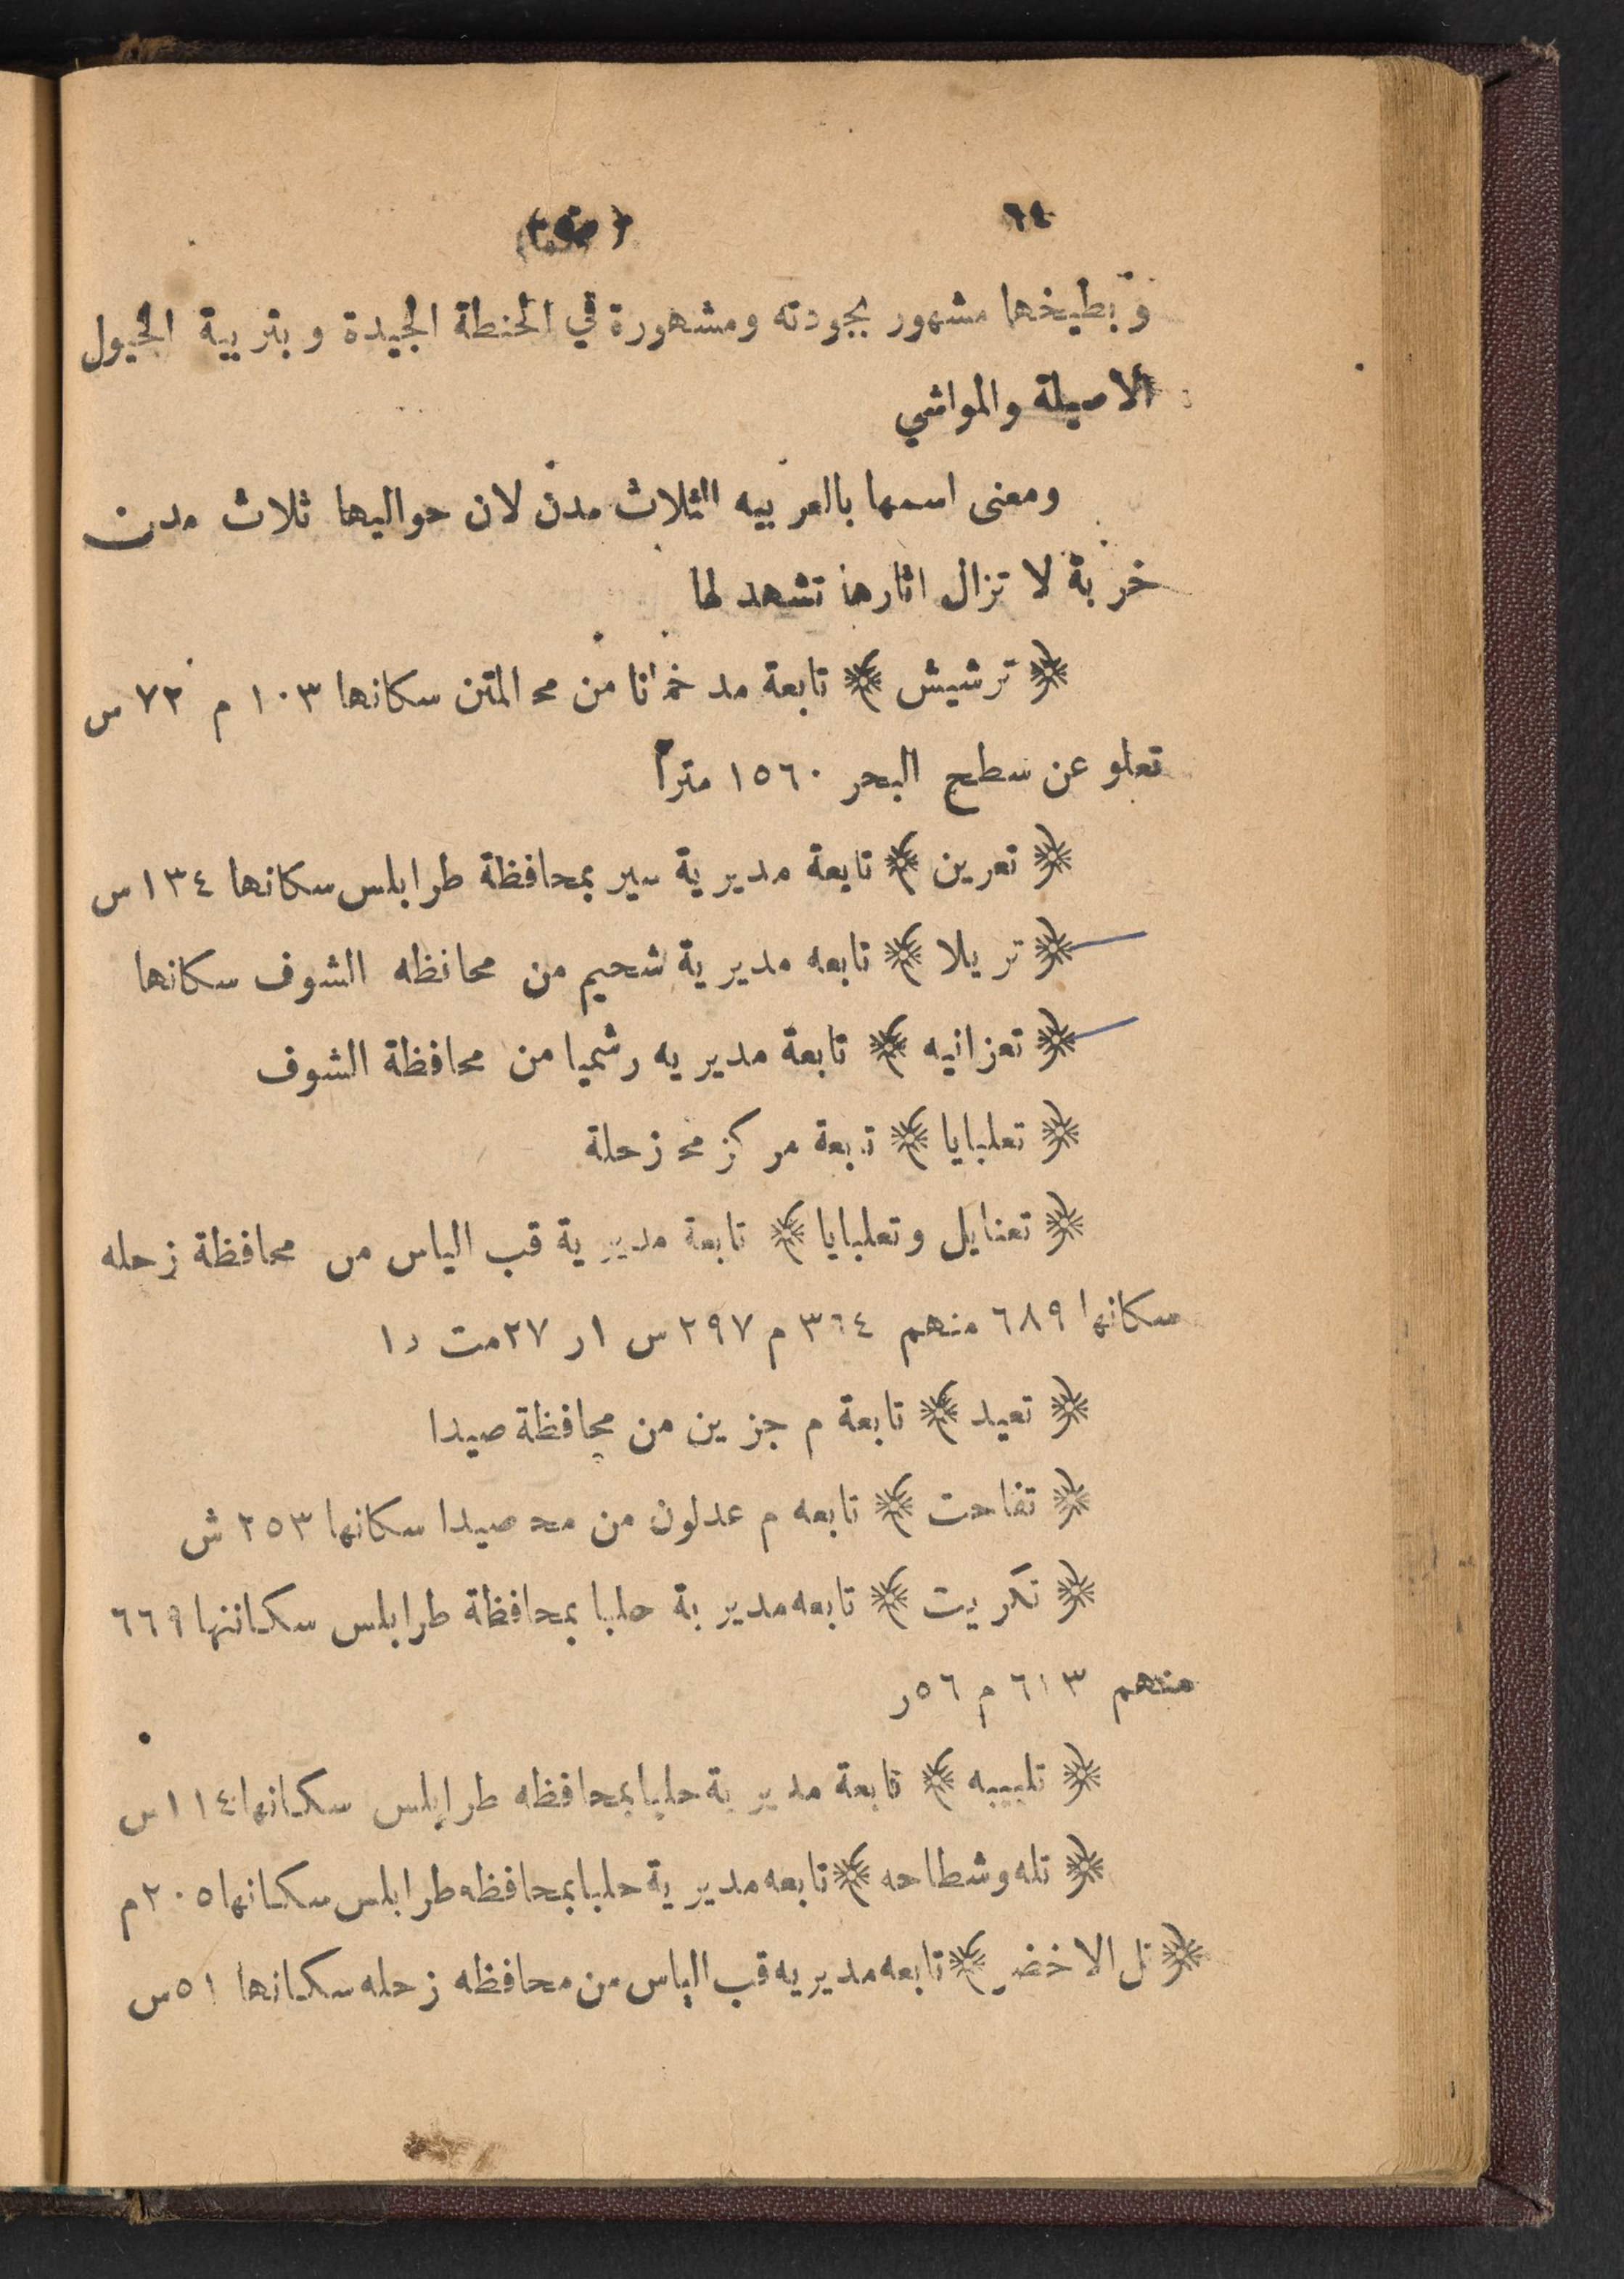 ٦٤
وبطيخها مشهور بجودته ومشهورة في الحنطة الجيدة وبتربية الخيول
الاصيلة والمواشي
ومعنى اسمها بالعربيه الثلاث مدن لان حواليها ثلاث مدن
خربة لا تزال اثارها تشهد لها
﴿ ترشيش ﴾ تابعة مد خمانا من مح المتن سكانها ١٠٣ م ٧٢ س
تعلو عن سطح البحر ١٥٦٠ متراً
﴿ تعرين ﴾ تابعة مديرية سير بمحافظة طرابلس سكانها ١٣٤ س
﴿ تريلا ﴾ تابعه مديرية شحيم من محافظه الشوف سكانها
﴿ تعزانيه ﴾ تابعة مديريه رشميا من محافظة الشوف
﴿ تعلبايا ﴾ تابعة مركز مح زحلة
﴿ تعنايل وتعلبايا ﴾ تابعة مديرية قب الياس من محافظة زحله
سكانها ٦٨٩ منهم ٣٦٤ م ٢٩٧ س ١ر ٢٧مت ١د
﴿ تعيد ﴾ تابعة م جزين من محافظة صيدا
﴿ تفاحت ﴾ تابعه م عدلون من مح صيدا سكانها ٢٥٣ ش
﴿ تكريت ﴾ تابعه مديرية حلبا بمحافظة طرابلس سكاننها ٦٦٩
منهم ٦١٣ م ٥٦ر
﴿ تليبيه ﴾ تابعة مديرية حلبا بمحافظه طرابلس سكانها ١١٤س
﴿ تله وشطاحه ﴾ تابعه مديرية حلبا بمحافظه طرابلس سكانها ٢٠٥م
﴿ تل الاخضر ﴾ تابعه مديريه قب الياس من محافظه زحله سكانها ٥١س